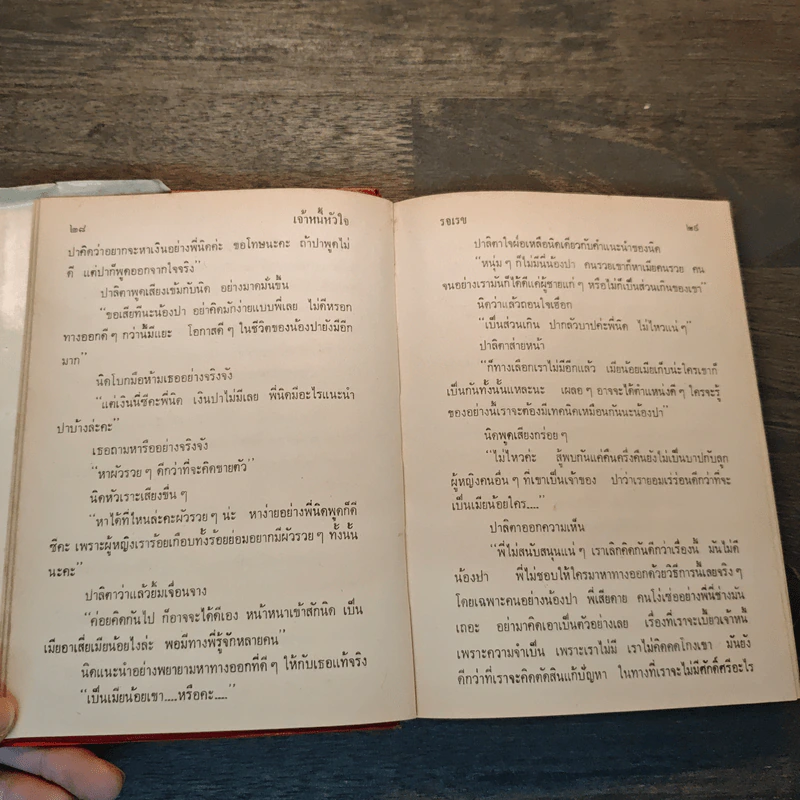 ๒๘
เจ้าหนี้หัวใจ
ปาคิดว่าอยากจะหาเงินอย่างพี่นิดค่ะ ขอโทษนะคะ ถ้าปาพูดไม่
ดี แต่ปาก็พูดออกจากใจจริง"
ปาลิตาพูดเสียงเข้มกับนิด อย่างมาดมั่นขึ้น
"ขอเสียทีนะน้องปา อย่าคิดมักง่ายแบบพี่เลย ไม่ดีหรอก
ทางออกดีๆ กว่านี้มีแยะ โอกาสดีๆ ในชีวิตของน้องปายังมีอีก
มาก"
นิดโบกมือห้ามเธออย่างจริงจัง
"แต่เงินนี่ซีคะพี่นิด เงินปาไม่มีเลย พี่นิดมีอะไรแนะนำ
ปาบ้างล่ะคะ"
เธอถามหารืออย่างจริงจัง
"หาผัวรวยๆ ดีกว่าที่จะคิดขายตัว"
นิดหัวเราะเสียงขื่นๆ
"หาได้ที่ไหนล่ะคะผัวรวยๆ น่ะ หาง่ายอย่างพี่นิดพูดก็ดี
ซีคะ เพราะผู้หญิงเราร้อยเกือบทั้งร้อยย่อมอยากมีผัวรวยๆ ทั้งนั้น
นะคะ"
ปาลิตาว่าแล้วยิ้มเจื่อนจาง
"ค่อยคิดกันไป ก็อาจจะได้ดีเอง หน้าหนาเข้าสักนิด เป็น
เมียอาเสี่ยเมียน้อยไงล่ะ พอมีทางพี่รู้จักหลายคน"
นิดแนะนำอย่างพยายามหาทางออกที่ดีๆ ให้กับเธอแท้จริง
"เป็นเมียน้อยเขา....หรือคะ...."
รอเรข
๒๙
ปาลิตาใจฝ่อเหลือนิดเดียวกับคำแนะนำของนิด
"หนุ่มๆ ก็ไม่มีนี่น้องปา คนรวยเขาก็หาเมียคนรวย คน
จนอย่างเรามันก็ได้ดีแค่ผู้ชายแก่ๆ หรือไม่ก็เป็นส่วนเกินของเขา"
นิดว่าแล้วถอนใจเฮือก
"เป็นส่วนเกิน ปากลัวบาปค่ะพี่นิด ไม่ไหวแน่ๆ"
ปาลิตาส่ายหน้า
"ก็ทางเลือกเราไม่มีอีกแล้ว เมียน้อยเมียเก็บน่ะใครเขาก็
เป็นกันทั้งนั้นแหละนะ เผลอๆ อาจจะได้ตำแหน่งดีๆ ใครจะรู้
ของอย่างนี้เราจะต้องมีเทคนิคเหมือนกันนะน้องปา"
นิดพูดเสียงกร่อยๆ
"ไม่ไหวค่ะ สู้พบกันแค่คืนครึ่งคืนยังไม่เป็นบาปกับลูก
ผู้หญิงคนอื่นๆ ที่เขาเป็นเจ้าของ ปาว่าเรายอมเร่ร่อนดีกว่าที่จะ
เป็นเมียน้อยใคร...."
ปาลิตาออกความเห็น
"พี่ไม่สนับสนุนแน่ๆ เราเลิกคิดกันดีกว่าเรื่องนี้ มันไม่ดี
น้องปา พี่ไม่ชอบให้ใครมาหาทางออกด้วยวิธีการนี้เลยจริงๆ
โดยเฉพาะคนอย่างน้องปา พี่เสียดาย คนโง่เซ่ออย่างพี่นี่ช่างมัน
เถอะ อย่ามาคิดเอาเป็นตัวอย่างเลย เรื่องที่เราจะเบี้ยวเจ้าหนี้
เพราะความจำเป็น เพราะเราไม่มี เราไม่คิดคดโกงเขา มันยัง
ดีกว่าที่เราจะคิดตัดสินแก้ปัญหา ในทางที่เราจะไม่มีศักดิ์ศรีอะไร